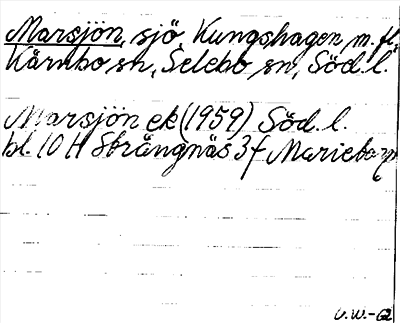 Marsjön, sjö Kungshagen m. fl.
Kärnbo sn, Selebo sn, Söd. l.
Marsjön ek (1959) Söd. l.
bl. 10 H Strängnäs 3f Marieborg
U.W.-62